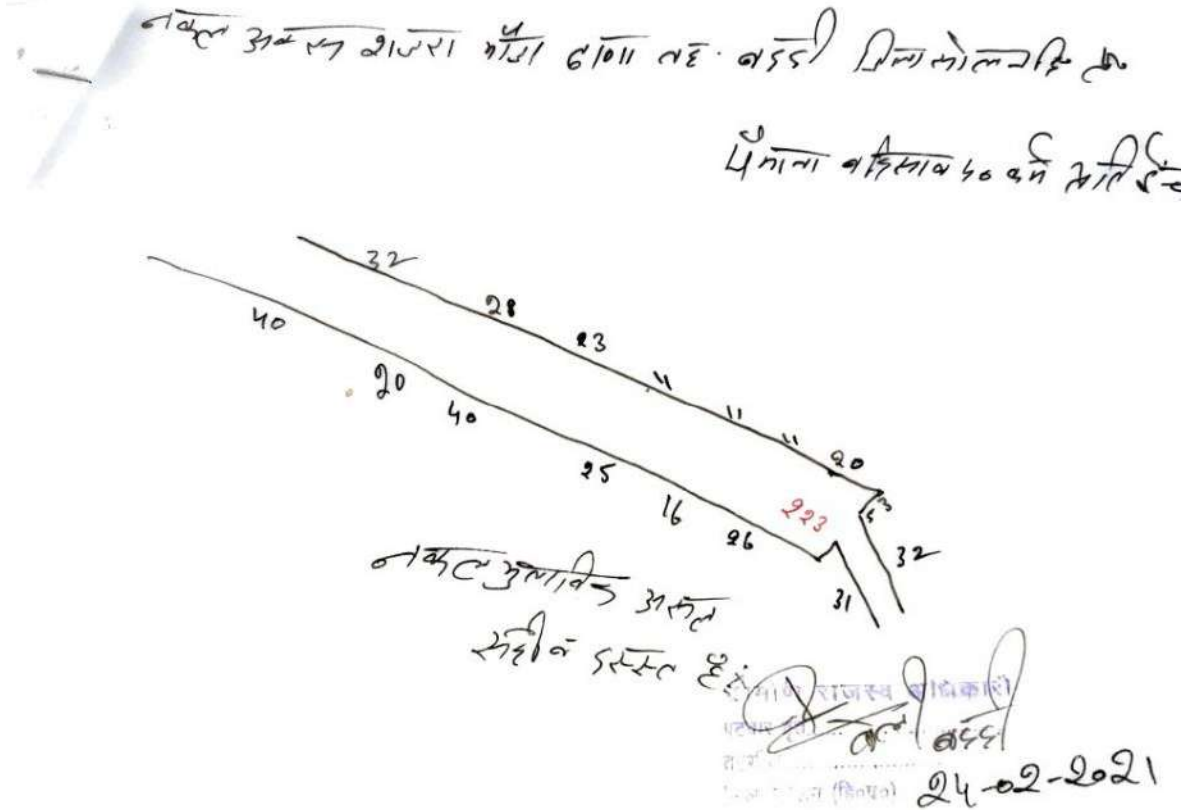 नकल अक्स शजरा मौजा ठाणा तह. बद्दी जिला सोलन हि प्र
पैमाना बहिसाब 40 कर्म प्रति इंच
32
28
23
11
11
11
20
40
20
40
25
16
26
223
5
32
31
नकल मुताबिक असल
सही व दरुस्त है।
बद्दी
24-02-2021